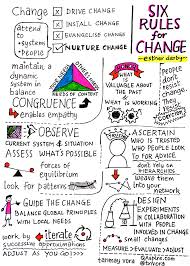 Change
DRIVE CHANGE
INSTALL CHANGE
EVANGELISE CHANGE
NURTURE CHANGE
attend to
system
people
SIX
RULES
for
CHANGE
-esther derby-
maintain a
dynamic
system in
balance
NEEDS OF CONTEXT
CONGRUENCE
enables empathy
WHAT IS
VALUABLE
ABOUT THE
PAST
WHAT IS WORKING
People
don't
resist
change,
OBSERVE
CURRENT SYSTEM & SITUATION
ASSESS WHAT'S POSSIBLE
forces
of inertia
look for patterns
ASCERTAIN
WHO IS TRUSTED
WHO PEOPLE LOOK
TO FOR ADVICE
don't rely on
THE HIERARCHY
work with
WITHIN
YOUR
NETWORK
GUIDE THE CHANGE
BALANCE GLOBAL PRINCIPLES
WITH LOCAL NEEDS
work by iterate
successive approximations
ADJUST AS YOU GO>>>
DESIGN
EXPERIMENTS
IN COLLABORATION
WITH PEOPLE
INVOLVED IN
CHANGE
small changes
MEASURE>EVALUATE>ADJUST